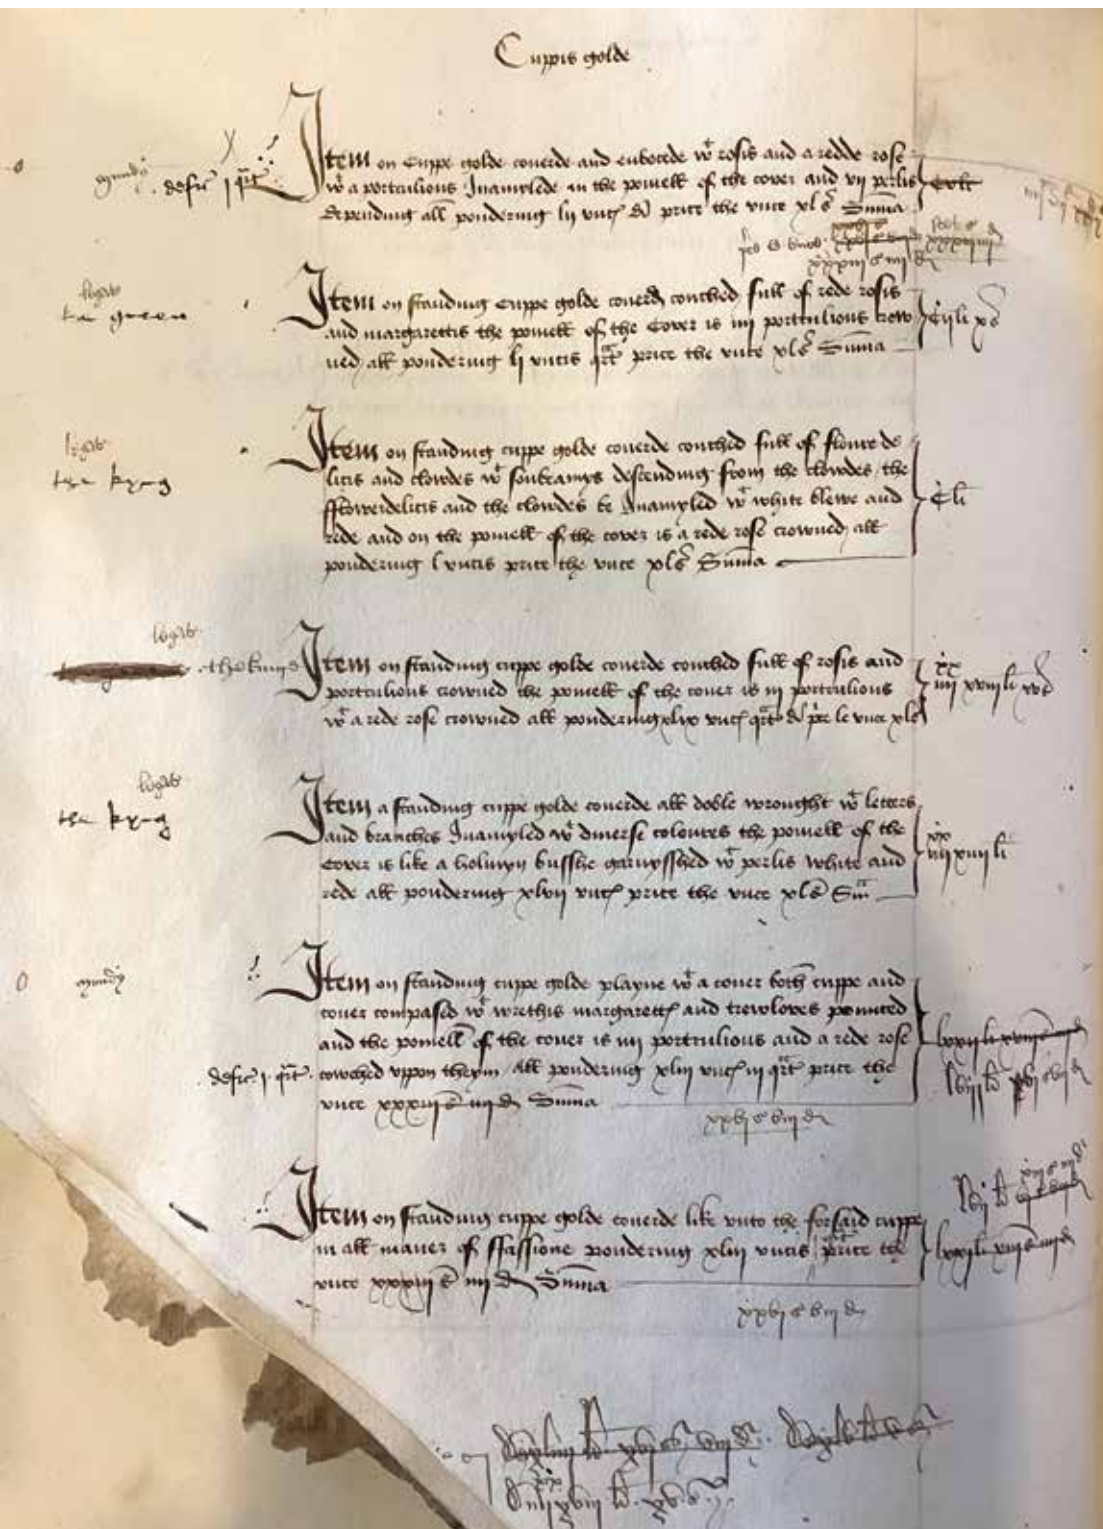 Cuppis golde
Item on Cuppe golde couerde and enbocede wt rosis and a redde rose
wt a portculious Inamylede in the pomell of the cover and vij perlis
depending all pondering lij vnc di price the vnce xls Summa
xxxiij s iiij d
legat
the queen
Item on standing Cuppe golde couerd couched full of rede rosis
and margarettis the pomell of the Cover is iiij portculious crow
ned all pondering lj vncis qrt price the vnce xls Summa
Cijli xs
legat
the kyng
Item on standing cuppe golde couerde couched full of floure de
licis and clowdes wt sonbeamys descending from the clowdes the
fflowerdelicis and the clowdes be Inamyled wt white blewe and
rede and on the pomell of the cover is a rede rose crowned all
pondering l vncis price the vnce xls Summa
Cli
legat
the kinge
Item on standing cuppe golde couerde couched full of rosis and
portculious crowned the pomell of the couer is iij portculious
wt a rede rose crowned all pondering xlix vnc qrt di pce le vnce xls
iiij xx xviij li xvs
legat
the kyng
Item a standing cuppe golde couerde all doble wrought wt letters
and branches Inamyled wt diuerse coloures the pomell of the
Cover is like a holiwyn busshe garnysshed wt perlis white and
rede all pondering xlvij vnc price the vnce xls Sma
iiij xx xiiij li
Item on standing cuppe golde playne wt a couer both cuppe and
couer compased wt wrethis margarett and trewloves pounced
and the pomell of the couer is iiij portculious and a rede rose
defic j qrt cowched vppon theym all pondering xliij vnc iij qrt price the
vnce xxxiij s iiij d Summa
xxvj s viij d
Item on standing cuppe golde couerde like vnto the forsaid cuppe
in all maner of ffassione pondering xliij vncis price the
vnce xxxiij s iiij d Summa
xxvj s viij d